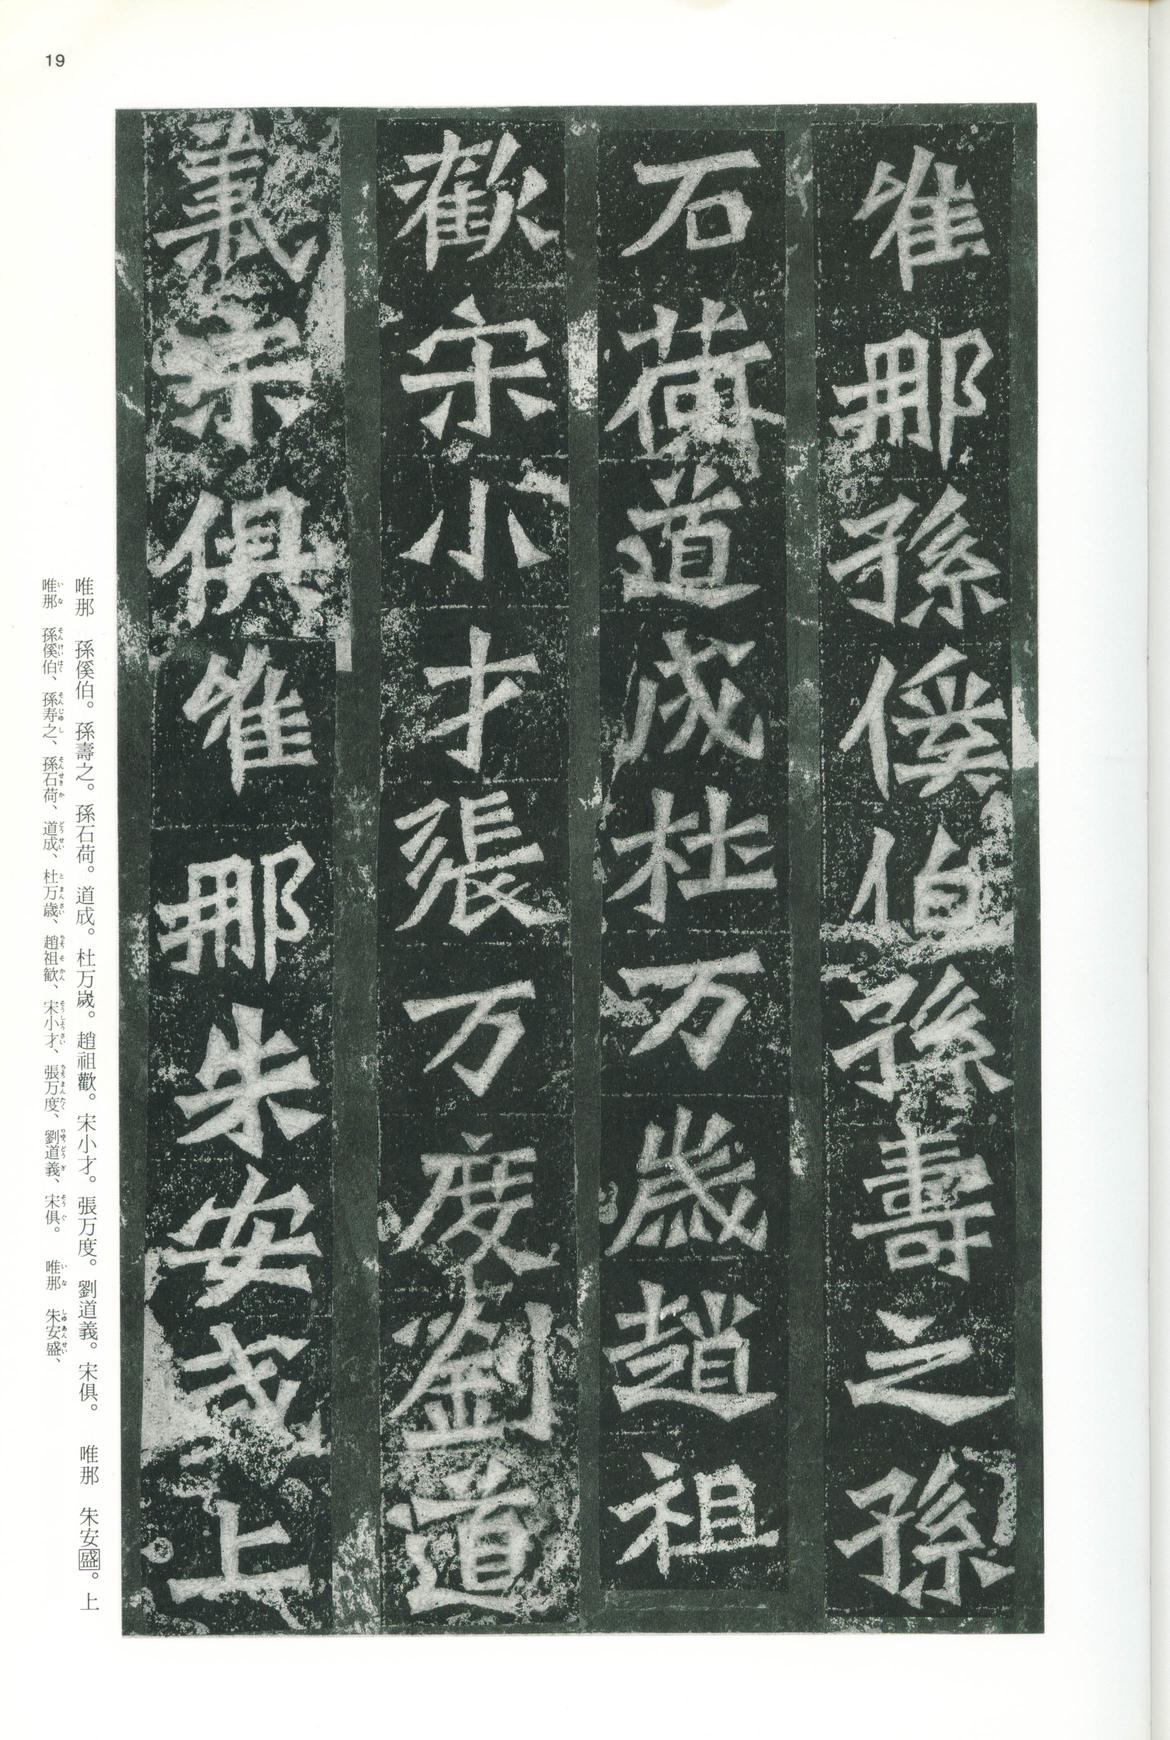 19
唯那孫傒伯孫壽之孫
石荷道成杜万歳趙祖
歡宋小才張万度劉道
義宋俱唯那朱安盛上
唯那　孫傒伯。孫壽之。孫石荷。道成。杜万歳。趙祖歡。宋小才。張万度。劉道義。宋俱。　唯那　朱安盛。上
唯那　孫傒伯、孫寿之、孫石荷、道成、杜万歳、趙祖歓、宋小才、張万度、劉道義、宋俱。　唯那　朱安盛、